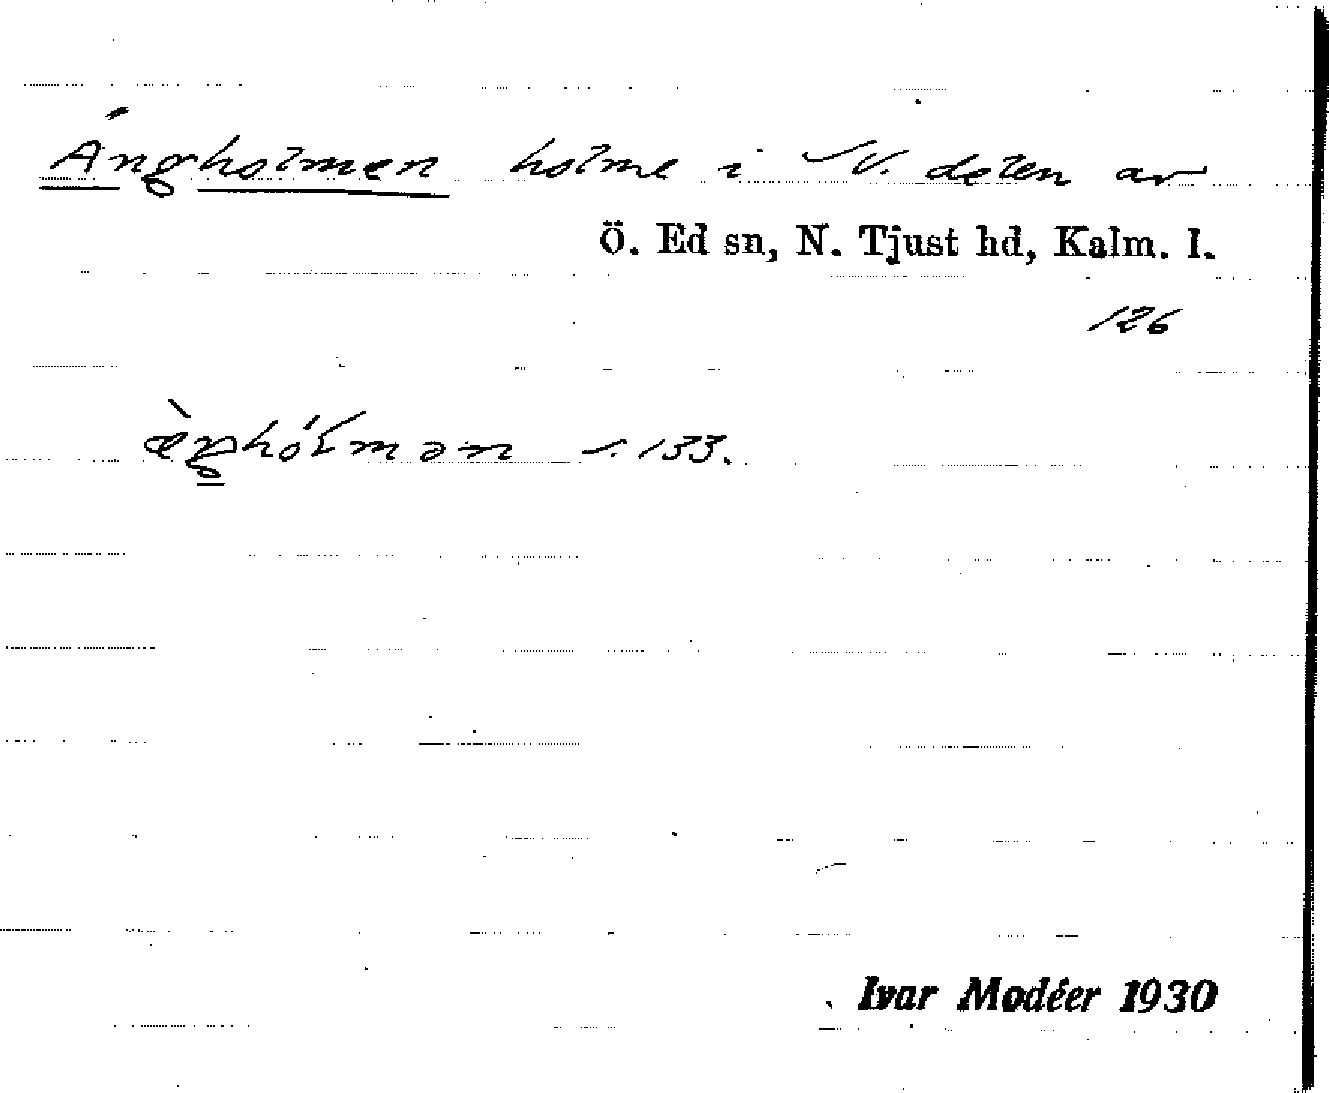 Ängholmen holme i N. delen av
Ö. Ed sn, N. Tjust hd, Kalm. l.
126
s. 133.
Ivar Modéer 1930